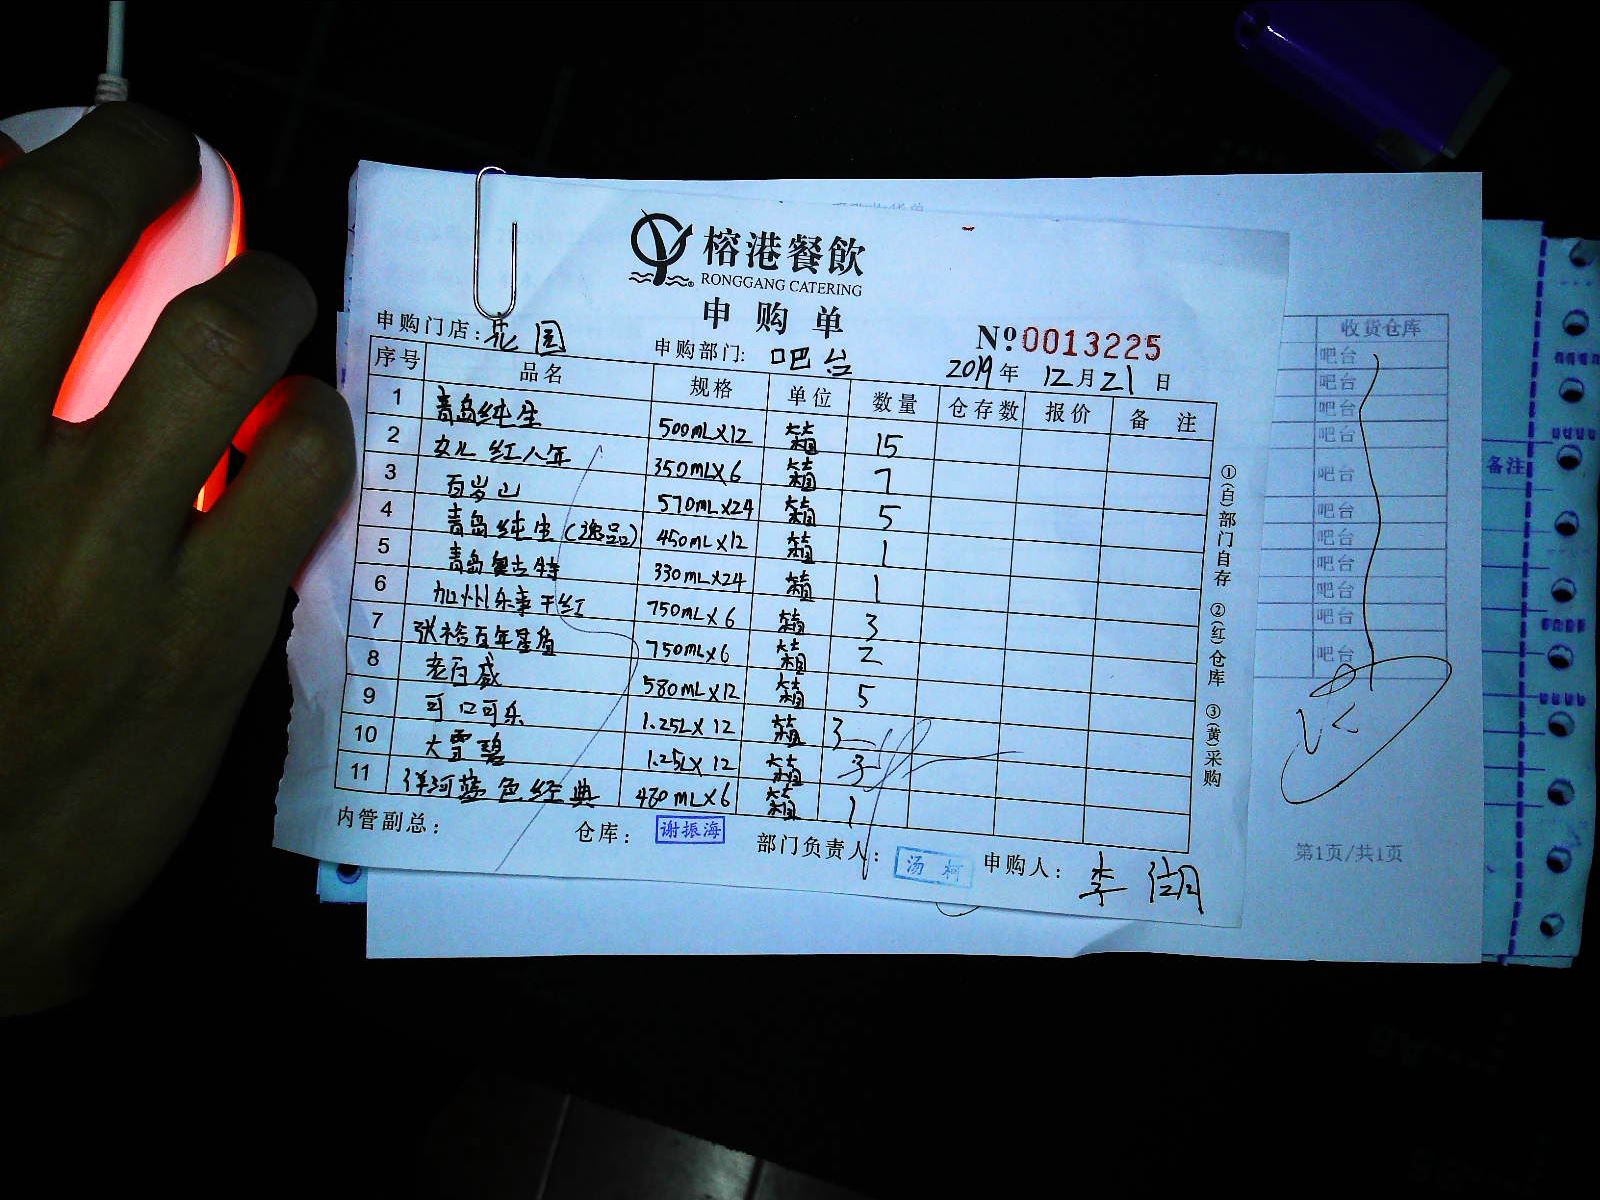 榕港餐飲
RONGGANG CATERING
申购单
申购门店: 花园 申购部门: 吧台 № 0013225
2019年 12月21日
序号 品名 规格 单位 数量 仓存数 报价 备注
1 青岛纯生 500mL×12 箱 15
2 女儿红八年 350mL×6 箱 7
3 百岁山 570mL×24 箱 5
4 青岛纯生(逸品) 450mL×12 箱 1
5 青岛奥古特 330mL×24 箱 1
6 加州乐事干红 750mL×6 箱 3
7 张裕百年星质 750mL×6 箱 2
8 老百威 580mL×12 箱 5
9 可口可乐 1.25L×12 箱 3
10 大雪碧 1.25L×12 箱 3
11 洋河蓝色经典 480mL×6 箱 1
内管副总: 仓库: 谢振海 部门负责人: 汤柯 申购人: 李
①(白)部门自存 ②(红)仓库 ③(黄)采购
收货仓库
吧台
吧台
吧台
吧台
吧台
吧台
吧台
吧台
吧台
吧台
吧台
第1页/共1页
备注